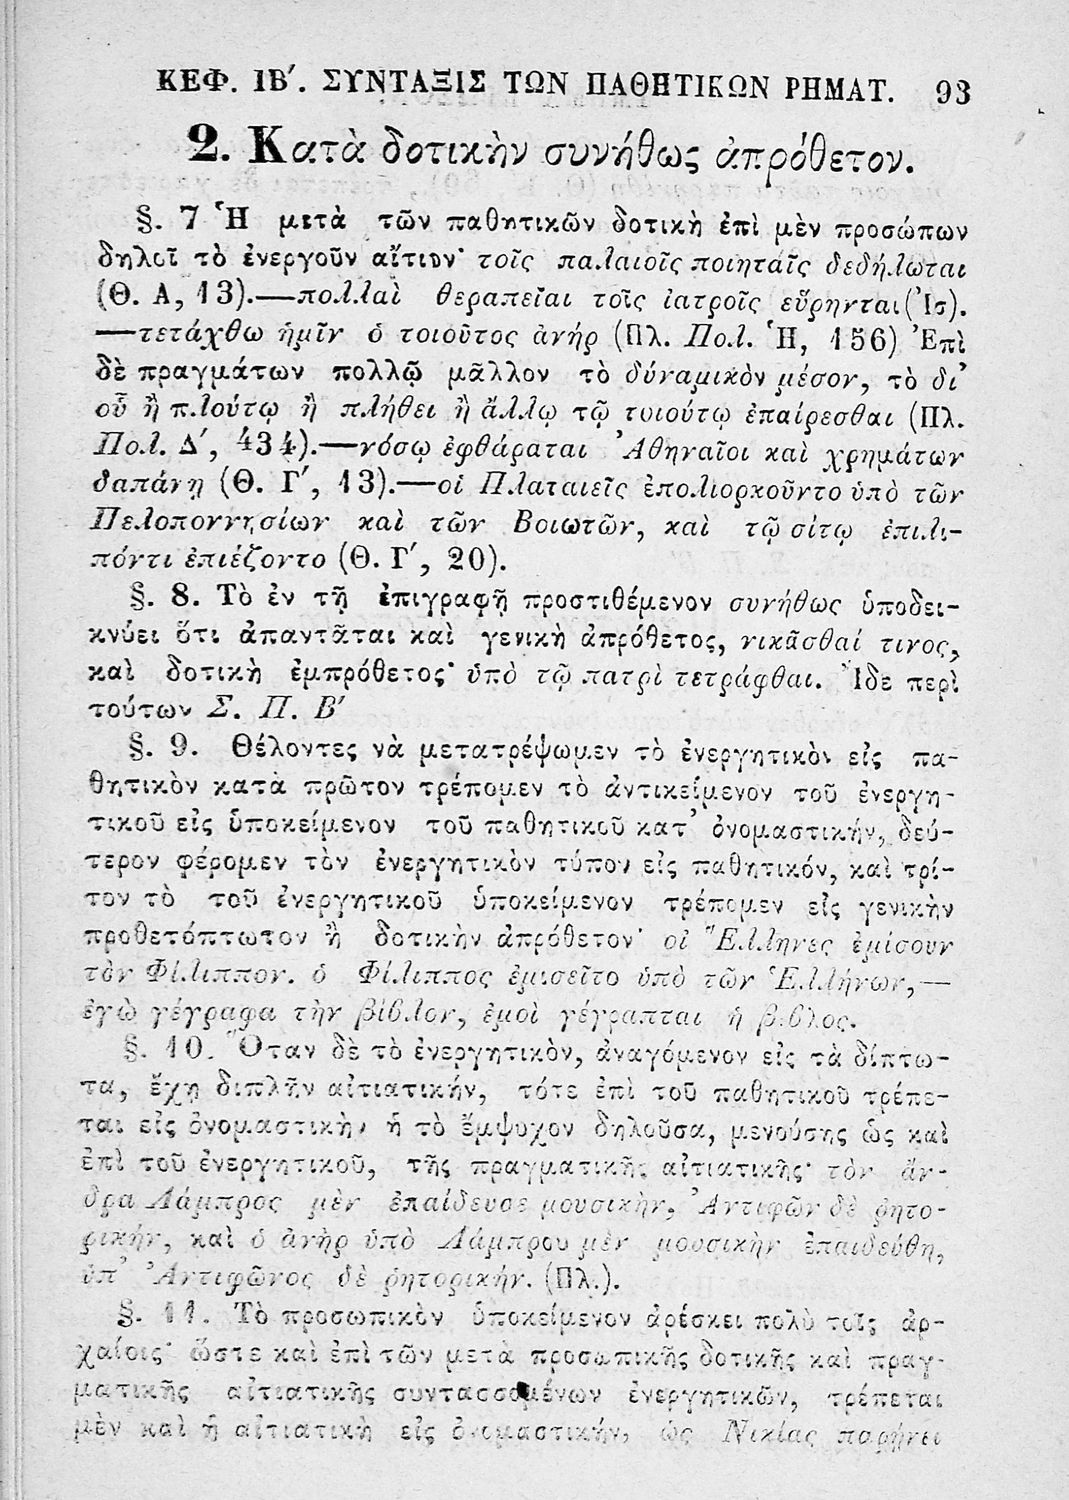 ΚΕΦ. ΙΒ΄. ΣΥΝΤΑΞΙΣ ΤΩΝ ΠΑΘΗΤΙΚΩΝ ΡΗΜΑΤ. 93
2. Κατὰ δοτικὴν συνήθως ἀπρόθετον.
§. 7 Ἡ μετὰ τῶν παθητικῶν δοτικὴ ἐπὶ μὲν προσώπων
δηλοῖ τὸ ἐνεργοῦν αἴτιον· τοῖς παλαιοῖς ποιηταῖς δεδήλωται
(Θ. Α, 13).—πολλαὶ θεραπεῖαι τοῖς ἰατροῖς εὕρηνται (Ἰσ).
—τετάχθω ἡμῖν ὁ τοιοῦτος ἀνήρ (Πλ. Πολ. Ἡ, 156) Ἐπὶ
δὲ πραγμάτων πολλῷ μᾶλλον τὸ δύναμικὸν μέσον, τὸ δι’
οὗ ἢ πλούτῳ ἢ πλήθει ἢ ἄλλῳ τῷ τοιούτῳ ἐπαίρεσθαι (Πλ.
Πολ. Δ΄, 434).—νόσῳ ἐφθάραται Ἀθηναῖοι καὶ χρημάτων
δαπάνῃ (Θ. Γ΄, 13).—οἱ Πλαταιεῖς ἐπολιορκοῦντο ὑπὸ τῶν
Πελοποννησίων καὶ τῶν Βοιωτῶν, καὶ τῷ σίτῳ ἐπιλι-
πόντι ἐπιέζοντο (Θ. Γ΄, 20).
§. 8. Τὸ ἐν τῇ ἐπιγραφῇ προστιθέμενον συνήθως ὑποδει-
κνύει ὅτι ἀπαντᾶται καὶ γενικὴ ἀπρόθετος, νικᾶσθαί τινος,
καὶ δοτικὴ ἐμπρόθετος· ὑπὸ τῷ πατρὶ τετράφθαι. Ἴδε περὶ
τούτων Σ. Π. Β΄
§. 9. Θέλοντες νὰ μετατρέψωμεν τὸ ἐνεργητικὸν εἰς πα-
θητικὸν κατὰ πρῶτον τρέπομεν τὸ ἀντικείμενον τοῦ ἐνεργη-
τικοῦ εἰς ὑποκείμενον τοῦ παθητικοῦ κατ’ ὀνομαστικήν, δεύ-
τερον φέρομεν τὸν ἐνεργητικὸν τύπον εἰς παθητικόν, καὶ τρί-
τον τὸ τοῦ ἐνεργητικοῦ ὑποκείμενον τρέπομεν εἰς γενικὴν
προθετόπτωτον ἢ δοτικὴν ἀπρόθετον· οἱ Ἕλληνες ἐμίσουν
τὸν Φίλιππον. ὁ Φίλιππος ἐμισεῖτο ὑπὸ τῶν Ἑλλήνων,—
ἐγὼ γέγραφα τὴν βίβλον, ἐμοὶ γέγραπται ἡ βίβλος.
§. 10. Ὅταν δὲ τὸ ἐνεργητικὸν, ἀναγόμενον εἰς τὰ δίπτω-
τα, ἔχῃ διπλῆν αἰτιατικήν, τότε ἐπὶ τοῦ παθητικοῦ τρέπε-
ται εἰς ὀνομαστικὴν ἡ τὸ ἔμψυχον δηλοῦσα, μενούσης ὡς καὶ
ἐπὶ τοῦ ἐνεργητικοῦ, τῆς πραγματικῆς αἰτιατικῆς· τὸν ἄν-
δρα Λάμπρος μὲν ἐπαίδευσε μουσικὴν, Ἀντιφῶν δὲ ῥητο-
ρικήν, καὶ ὁ ἀνὴρ ὑπὸ Λάμπρου μὲν μουσικὴν ἐπαιδεύθη,
ὑπ’ Ἀντιφῶνος δὲ ῥητορικήν. (Πλ.).
§. 11. Τὸ προσωπικὸν ὑποκείμενον ἀρέσκει πολὺ τοῖς ἀρ-
χαίοις· ὥστε καὶ ἐπὶ τῶν μετὰ προσωπικῆς δοτικῆς καὶ πραγ-
ματικῆς αἰτιατικῆς συντασσομένων ἐνεργητικῶν, τρέπεται
μὲν καὶ ἡ αἰτιατικὴ εἰς ὀνομαστικήν, ὡς Νικίας παρῄνει